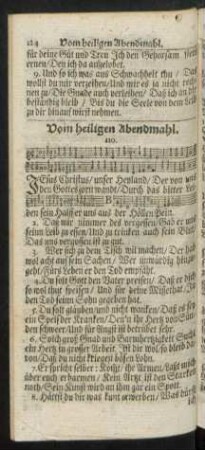 124 Vom heiligen Abendmahl.
für deine Güt und Treu Ich den Gehorsam
ernen / Den ich dir
9. Und so ich was aus Schwachheit thu / Daß
wollst du mir verzeihen / Und mir es ja nicht rech-
nen zu / Die Gnade auch verleihen / Daß ich an dir
beständig bleib / Bis du die Seele von dem Leib
zu dir hinauf wirst nehmen.
Vom heiligen Abendmahl.
110.
JEsus Christus / unser Heyland / Der von uns
den Gottes Zorn wandt / Durch das bitter Lei-
den sein Half er uns aus der Höllen Pein.
2. Daß wir nimmer des vergessen / Gab er uns
seinen Leib zu essen / Und zu trincken auch sein Blut /
Das uns vergossen ist zu gut.
3. Wer sich zu dem Tisch will machen / Der hab
wol acht auf sein Sachen / Wer unwürdig hinzu
geht / Fürs Leben er den Tod empfäht.
4. Du solt Gott den Vater preisen / Daß er dich
so wol that speisen / Und für deine Missethat / In
den Tod seinen Sohn gegeben hat.
5. Du solt gläuben / und nicht wancken / Daß es sey
ein Speiß der Krancken / Den'n ihr Hertz von Sün-
den schwer / Und für Angst ist betrübet sehr.
6. Solch groß Gnad und Barmhertzigkeit Sucht
ein Hertz in grosser Arbeit. Ist dir wol so bleib da-
von / Daß du nicht kriegest bösen Lohn.
7. Er spricht selber: Kommt / ihr Armen / Last mich
über euch erbarmen / Kein Artzt ist den Starcken
noth / Sein Kunst wird an ihm gar ein Spott.
8. Hättst du dir was kunt erwerben / Was